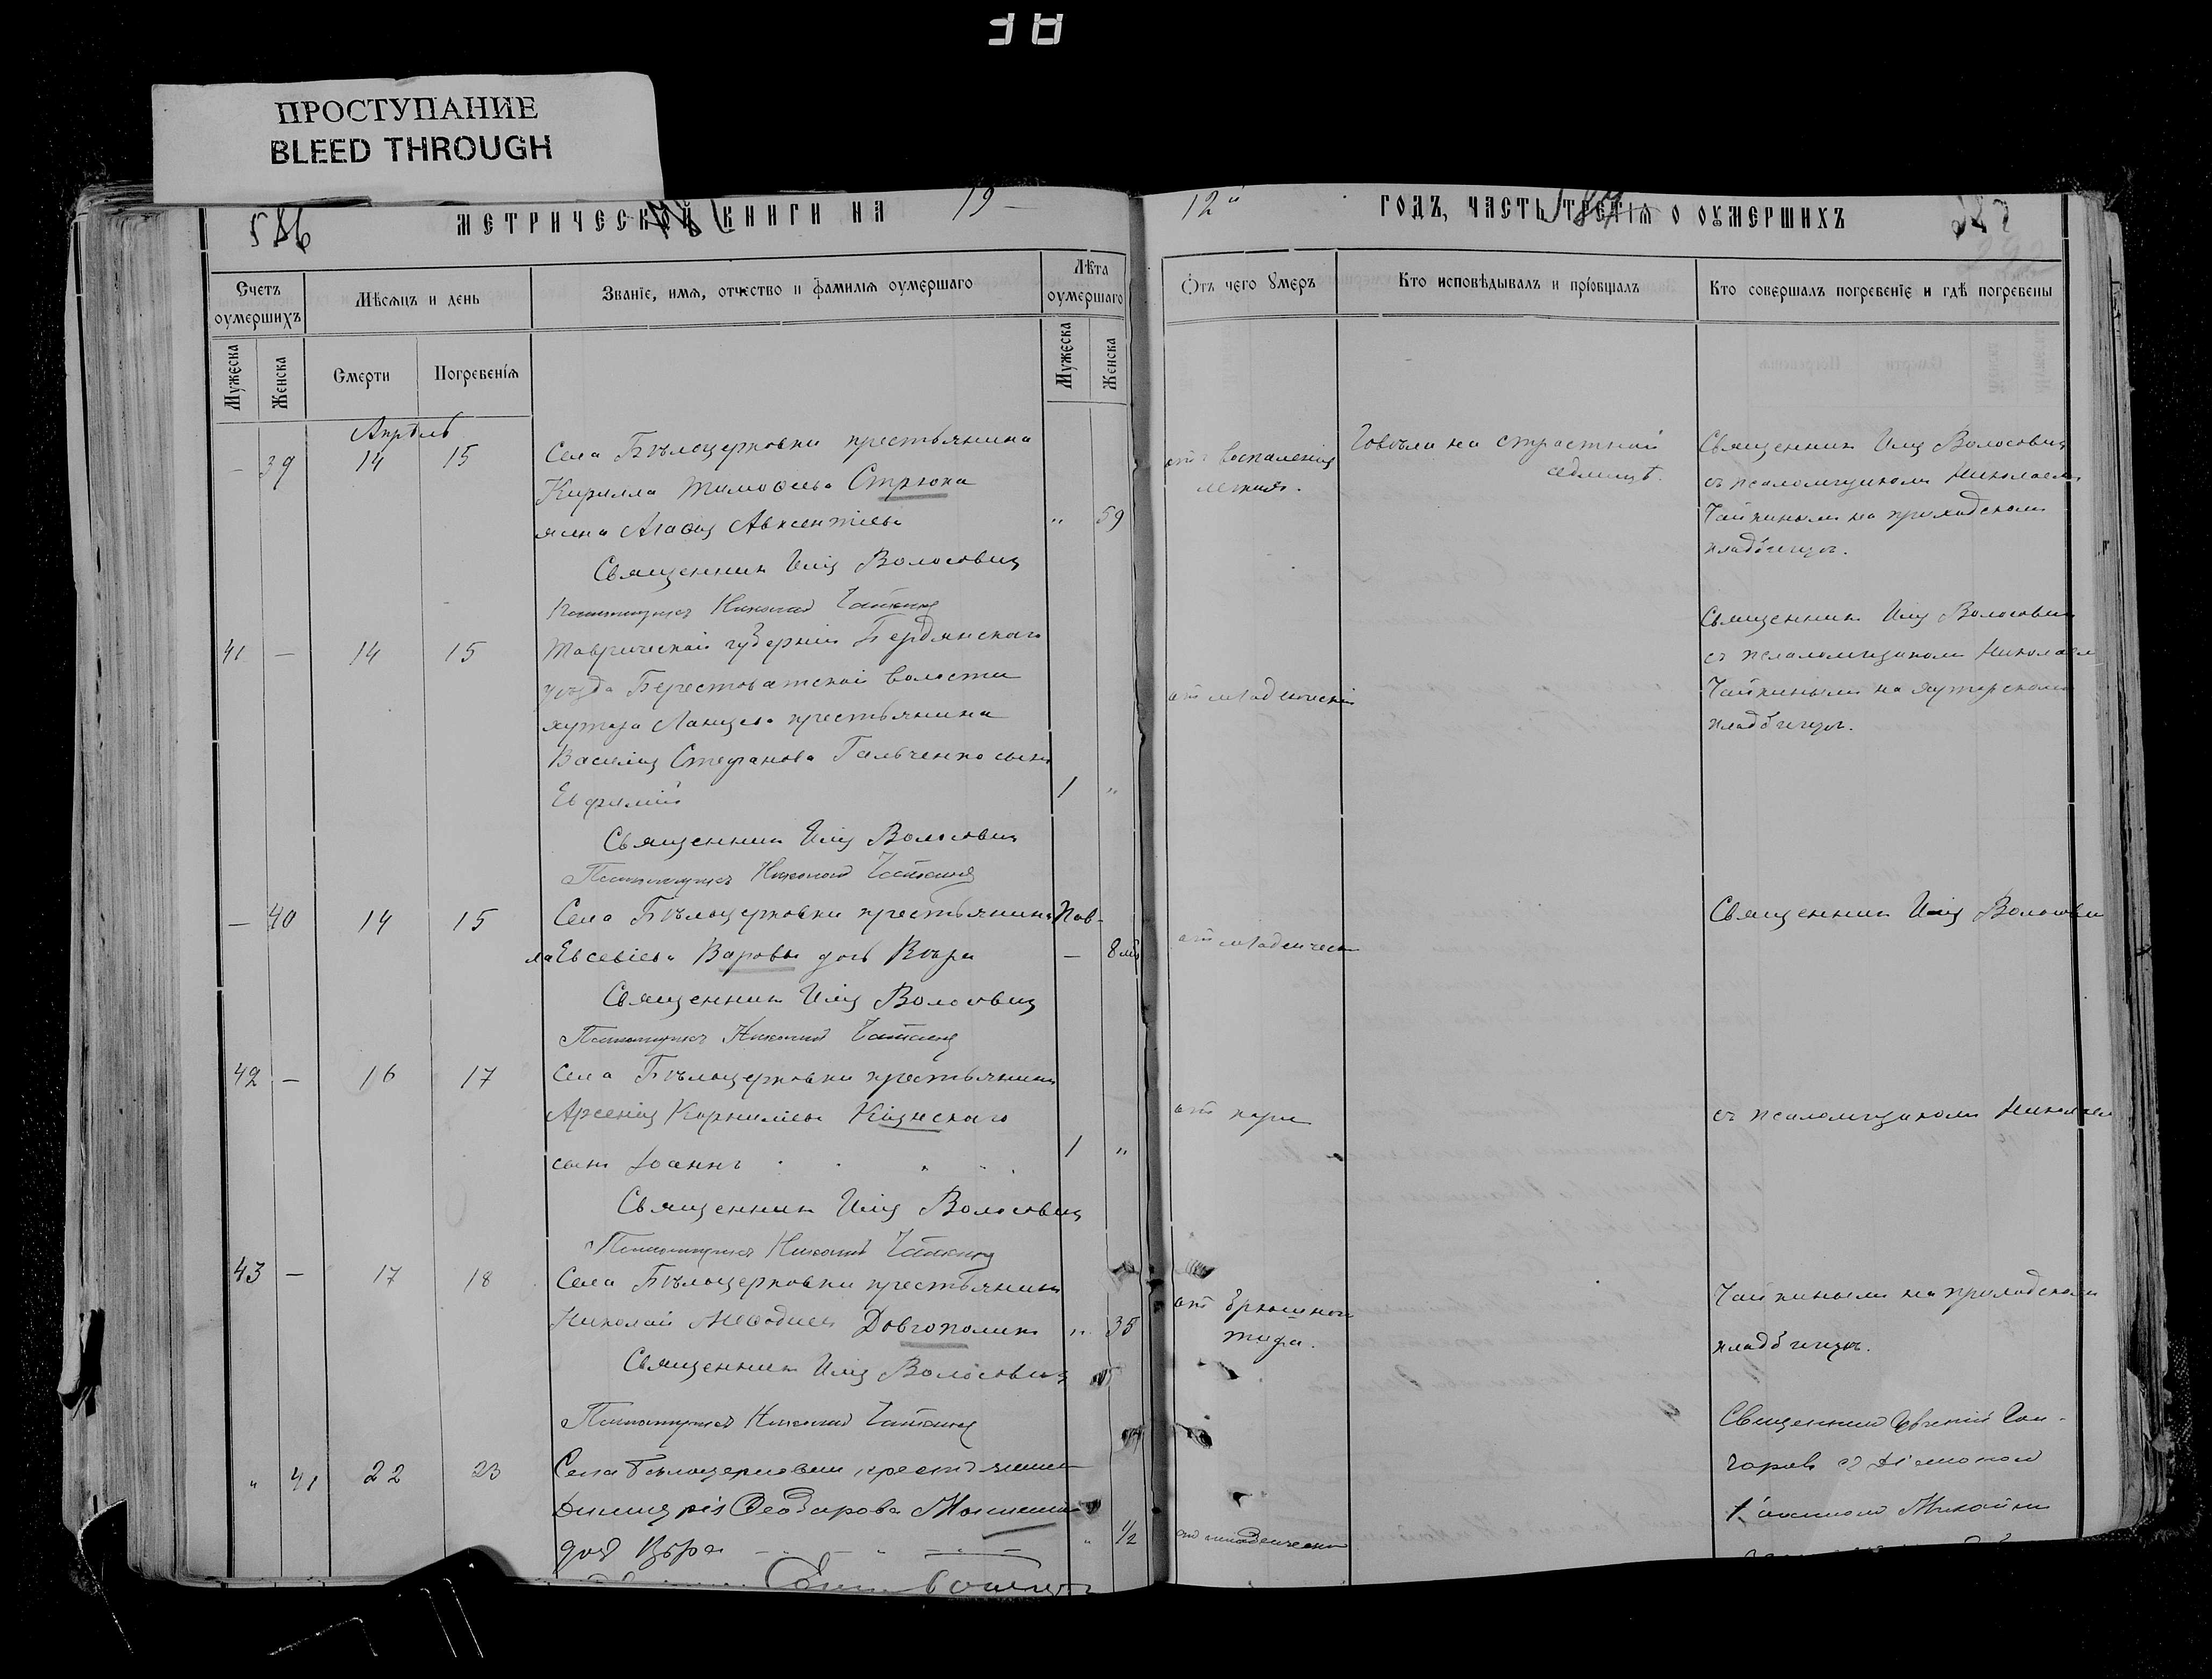 38
ПРОСТУПАНИЕ
BLEED THROUGH
586
МЕТРИЧЕСКОЙ КНИГИ НА 19 –
12й ГОДЪ, ЧАСТЬ ТРЕТІЯ О ОУМЕРШИХЪ
Счетъ оумершихъ
Мѣсяцъ и день
Званіе, имя, отчество и фамилія оумершаго
Лѣта оумершаго
Отъ чего умеръ
Кто исповѣдывалъ и пріобщалъ
Кто совершалъ погребеніе и гдѣ погребены
Мужеска
Женска
Смерти
Погребенія
Мужеска
Женска
Апрѣль
– 39 14 15
Села Бѣлоцерковки крестьянина
Кирилла Тимоѳеева Стрюка
жена Агаѳія Авксентіева " 59
Священник Илія Волосович
Псаломщикъ Николай Чайкин
от воспаления
легких.
Говѣла на страстной
седмицѣ.
Священник Илія Волосович
съ псаломщиком Николаем
Чайкиным на приходском
кладбищѣ.
41 – 14 15
Таврической губерніи Бердянскаго
уѣзда Берестоватской волости
хутора Ланцева крестьянина
Василія Стефанова Гальченко сын
Евфимій 1 "
Священник Илія Волосович
Псаломщикъ Николай Чайкин
от младенческ
Священник Илія Волосович
съ псаломщиком Николаем
Чайкиным на хуторском
кладбищѣ.
– 40 14 15
Села Бѣлоцерковки крестьянина Пав-
ла Евсевіева Варавы дочь Вѣра – 8 м
Священник Илія Волосович
Псаломщикъ Николай Чайкин
от младенческ
Священник Илія Волосович
42 – 16 17
Села Бѣлоцерковки крестьянина
Арсенія Корниліева
сын Іоаннъ 1 "
Священник Илія Волосович
Псаломщикъ Николай Чайкин
от кори
съ псаломщиком Николаем
43 – 17 18
Села Бѣлоцерковки крестьянин
Николай Меѳодиев Довгополик " 35
Священник Илія Волосович
Псаломщикъ Николай Чайкин
от брюшного
тифа.
Чайкиным на приходском
кладбищѣ.
" 41 22 23
Села Бѣлоцерковки крестьянина
Димитрія Ѳеодорова
дочь Вѣра " 1/2
от младенческ
Священник Евгений Гон-
чаров съ діаконом